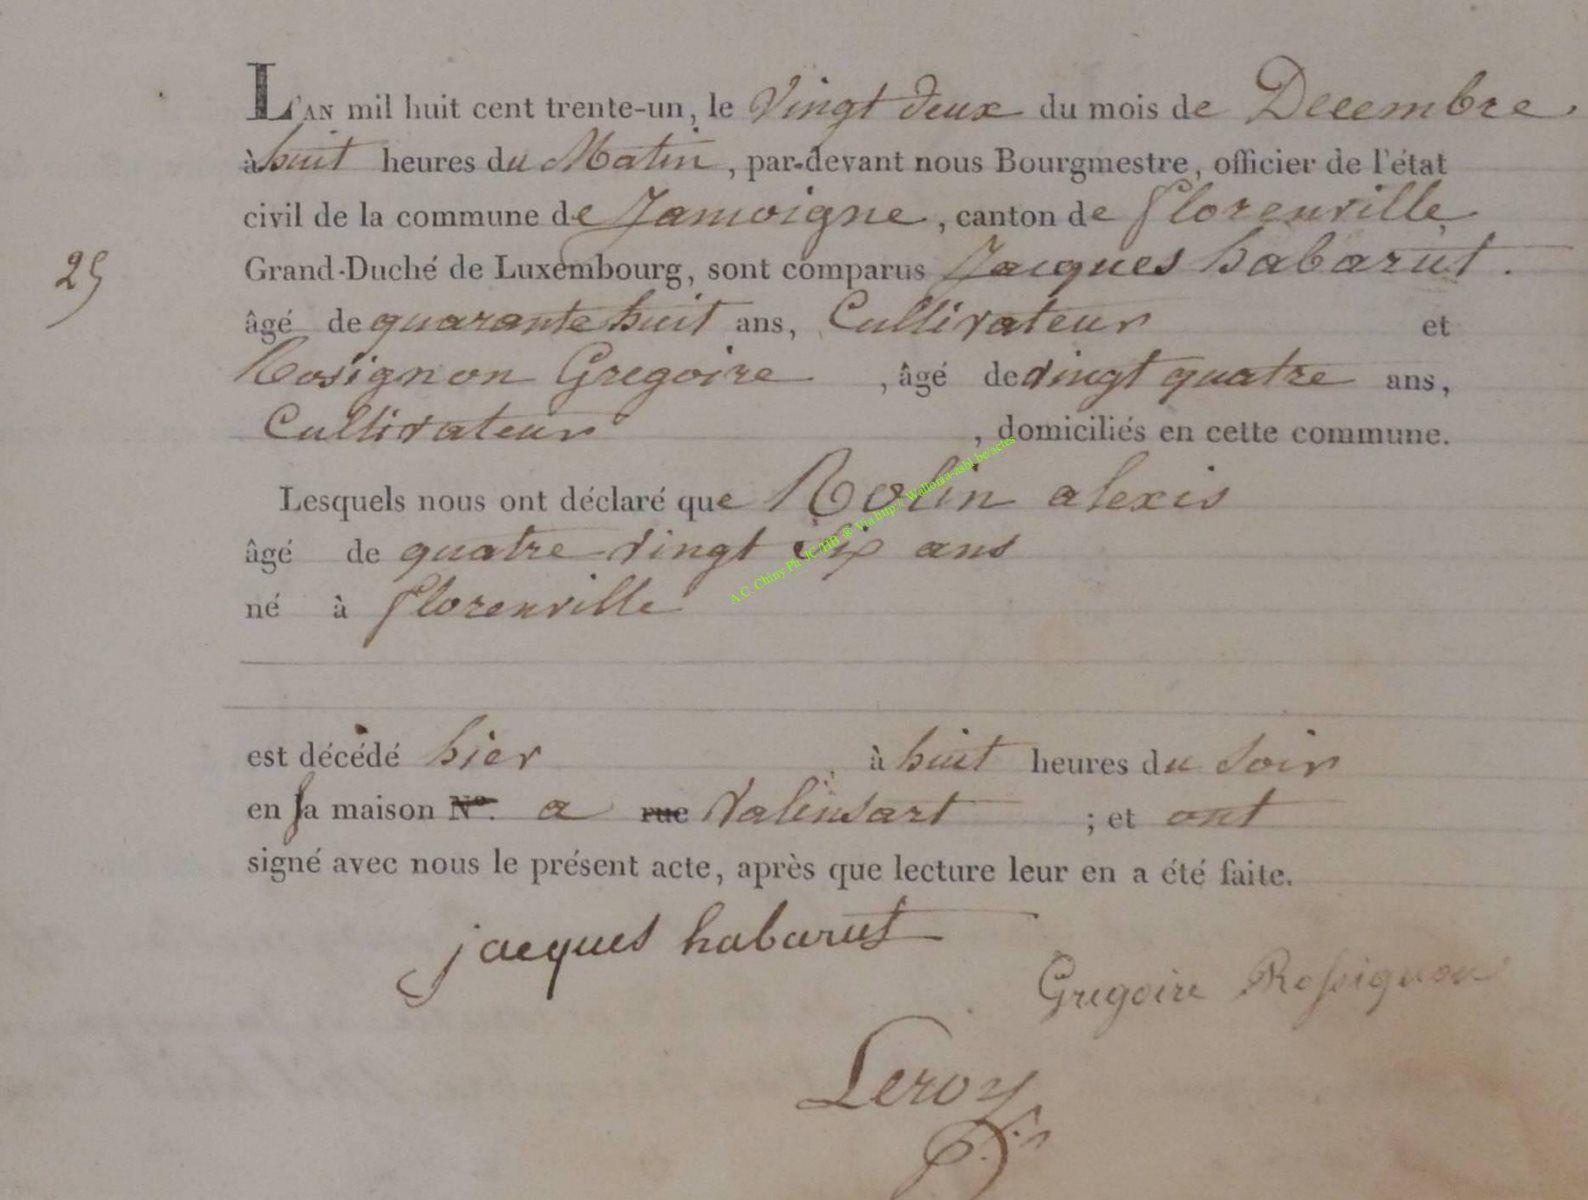 L'AN mil huit cent trente-un, le Vingt deux du mois de Decembre
à huit heures du Matin, par-devant nous Bourgmestre, officier de l'état
civil de la commune de Jamoigne, canton de florenville
25
Grand-Duché de Luxembourg, sont comparus Jacques habarut.
âgé de quarante huit ans, Cultivateur et
Rosignon Gregoire, âgé de vingt quatre ans,
Cultivateur, domiciliés en cette commune.
Lesquels nous ont déclaré que Rolin alexis
âgé de quatre vingt six ans
né à florenville
A.C. Chiny Ph JC/HB ® Via http:// Wallonia-asbl.be/actes
est décédé hier à huit heures du Soir
en sa maison N°. a rue Valinsart ; et ont
signé avec nous le présent acte, après que lecture leur en a été faite.
jacques habarut
Gregoire Rossignon
Leroy